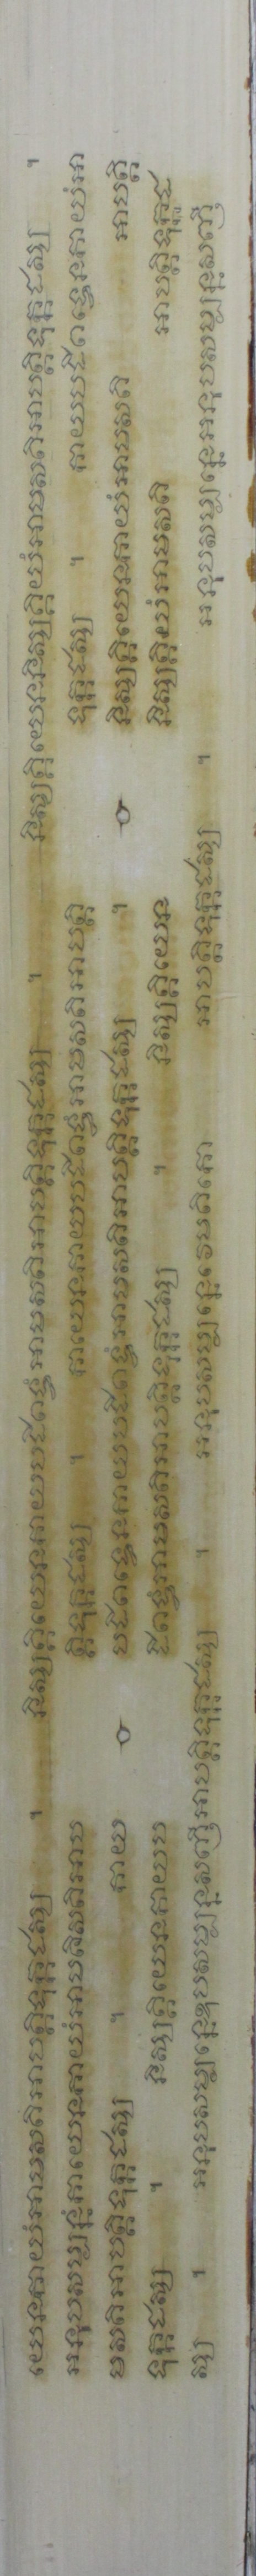 យេនកាយំអាមសតិអាបត្តិទុក្កដស្ស ។ និស្សគ្គិយេនកាយបដិពទ្ធំអាមសតិអាបត្តិទុក្កដស្ស ។ និស្សគ្គិយេននិស្សគ្គិយំអាមសតិអាបត្តិទុក្កដស្ស ។
អនុបសម្បន្នំកាយេនកាយំអាមតិសតិអាប ត្តិទុក្កដស្ស ។ កាយេនកាយបដិពទ្ធំអាមសតិអាបត្តិ ទុក្កដស្ស ។ កាយបដិពទ្ធេនកាយំអា
មសតិអាបត្តិទុក្កដស្ស ។ កាយ បដិពទ្ធេនកាយបដិពទ្ធំអាមសតិអាបត្តិទុក្កដស្ស ។ និស្សគ្គិយេនកាយំអាមសតិ អាបត្តិ
ទុក្កដស្ស ។ និស្សគ្គិយេនកាយប ដិពទ្ធំអាមសតិអាបត្តិទុក្កដស្ស ។ និស្សគ្គិយេន និស្សគ្គិយំអាមសតិ អាបត្តិទុក្កដ
ស្ស ។ អនុបសម្បន្នេឧបសម្បន្នសញ្ញីអាបត្តិទុក្កដស្ស ។ អនុបសម្បន្នេវេមតិកោ អាបត្តិទុក្កដស្ស ។ អនុបសម្បន្នេអនុបសម្បន្នសញ្ញី